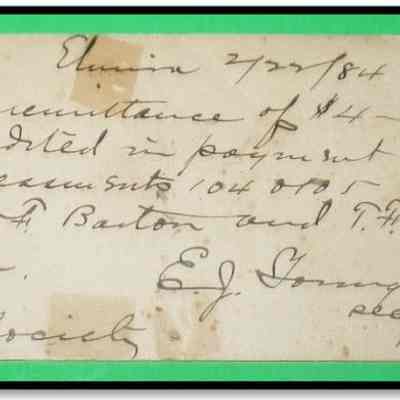 Elmira 2/22/84
remittance of $4-
dited in payment
essments 104 0105
F Barton and T.F.
E. J. Young
sec
Society